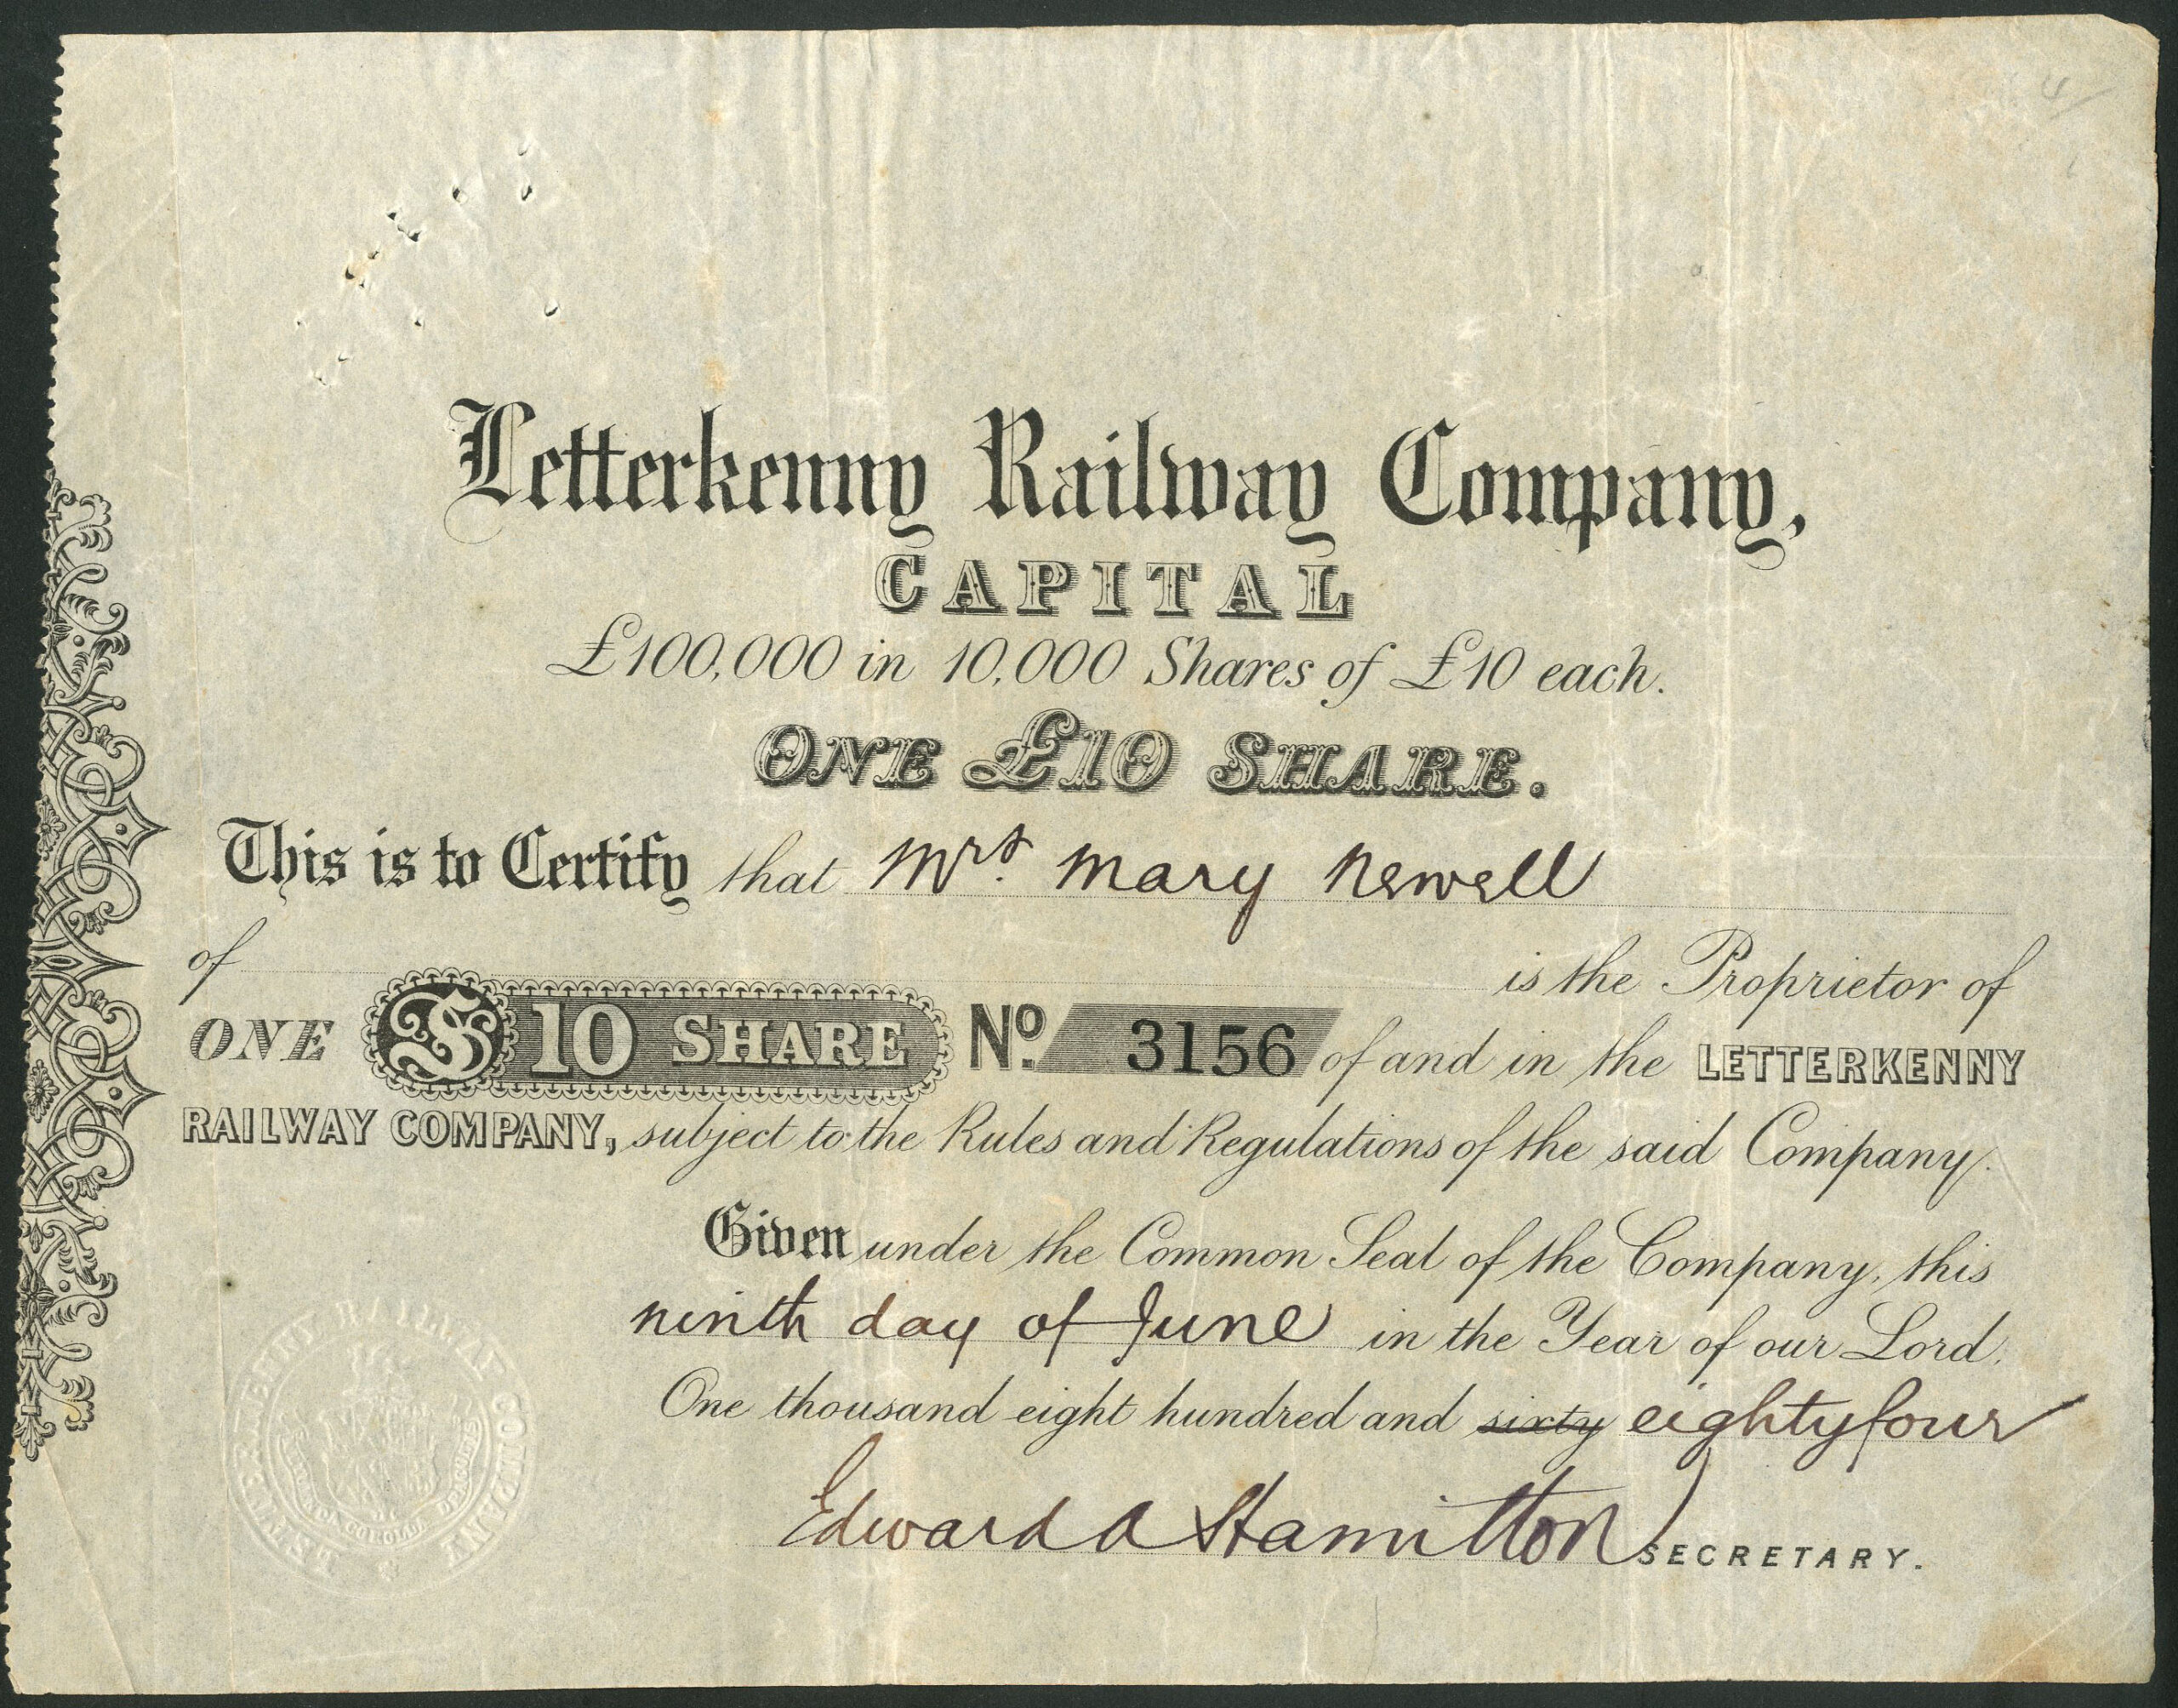 Letterkenny Railway Company,
CAPITAL
£100,000 in 10,000 Shares of £10 each.
ONE £10 SHARE.
This is to Certify that Mrs. Mary Newell
of is the Proprietor of
ONE £10 SHARE No. 3156 of and in the LETTERKENNY
RAILWAY COMPANY, subject to the Rules and Regulations of the said Company.
Given under the Common Seal of the Company, this
ninth day of June in the Year of our Lord.
One thousand eight hundred and sixty eightyfour
Edward A Hamilton SECRETARY.
LETTERKENNY RAILWAY COMPANY